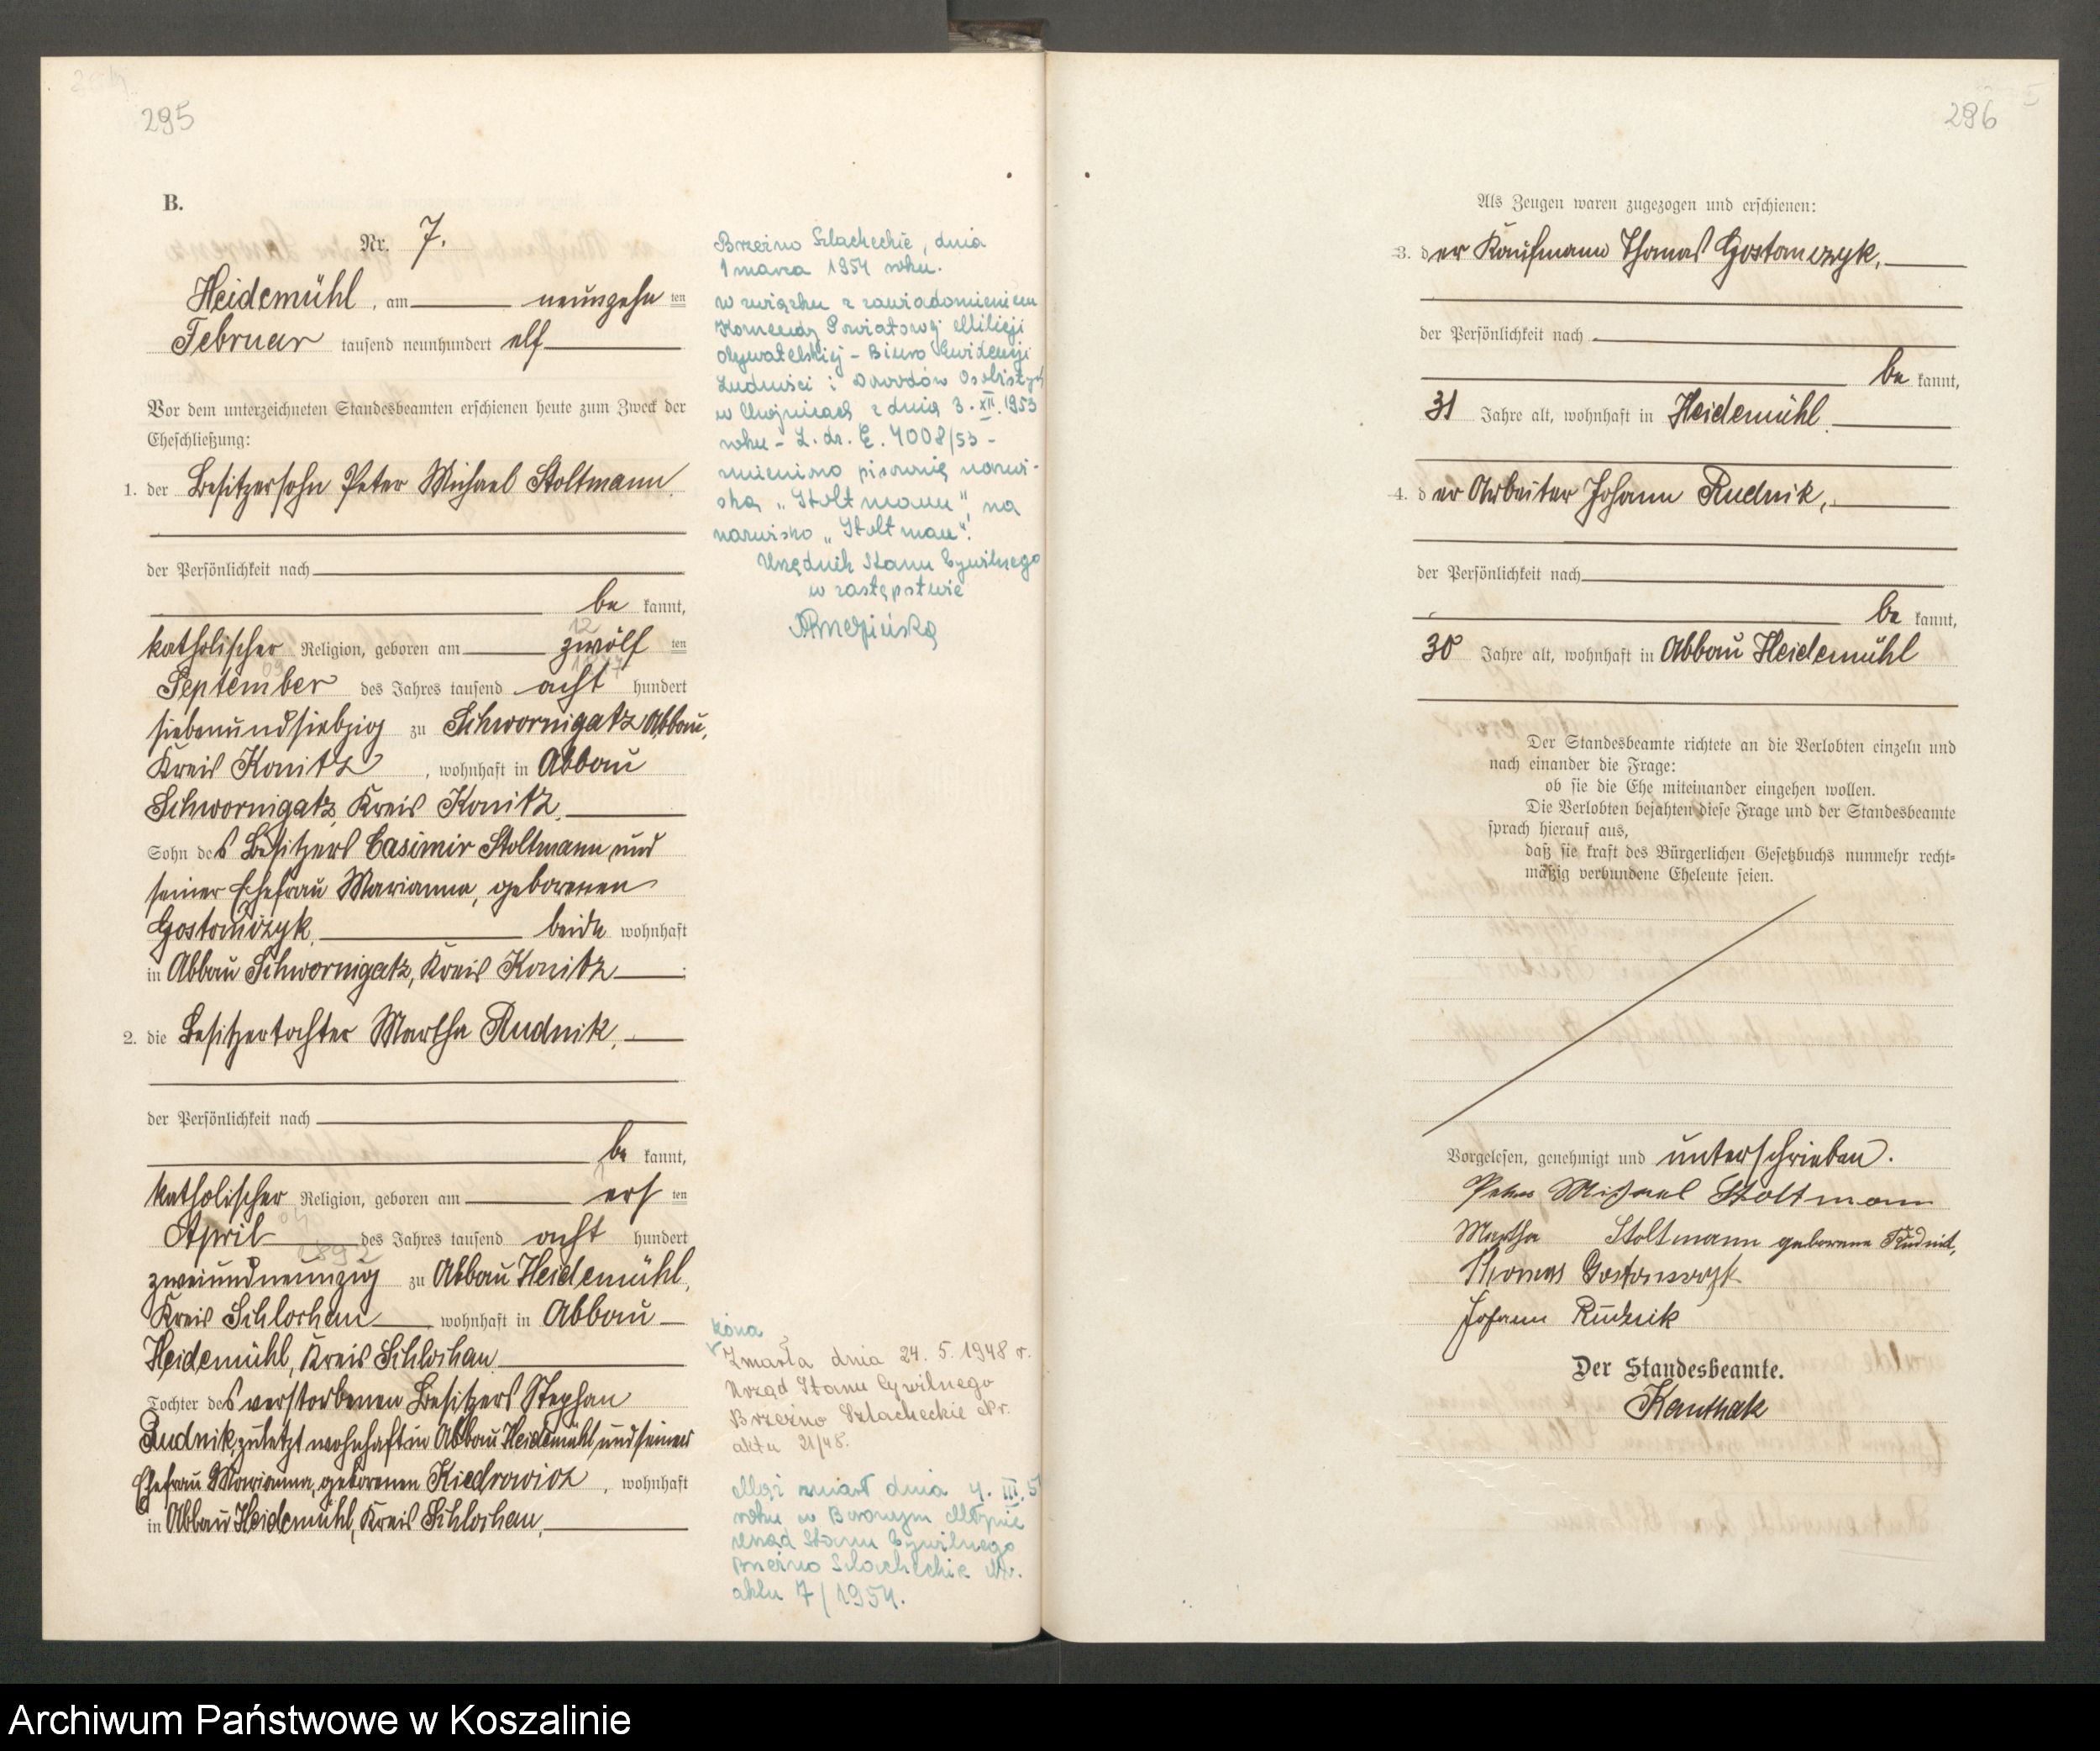 295
B.
Nr. 7.
Heidemühl, am neunzehn ten
Februar tausend neunhundert elf
Vor dem unterzeichneten Standesbeamten erschienen heute zum Zweck der
Eheschließung:
1. der Besitzersohn Peter Michael Stoltmann,
der Persönlichkeit nach
be kannt,
12
katholischer Religion, geboren am zwölf ten
09 1877
September des Jahres tausend acht hundert
siebenundsiebzig zu Schwornigatz Abbau,
Kreis Konitz, wohnhaft in Abbau
Schwornigatz, Kreis Konitz,
Sohn des Besitzers Casimir Stoltmann und
seiner Ehefrau Marianna, geborenen
Gostomczyk, beide wohnhaft
in Abbau Schwornigatz, Kreis Konitz.
2. die Besitzertochter Martha Rudnik,
der Persönlichkeit nach
be kannt,
katholischer Religion, geboren am ers ten
04
April des Jahres tausend acht hundert
1892
zweiundneunzig zu Abbau Heidemühl,
Kreis Schlochau, wohnhaft in Abbau
Heidemühl, Kreis Schlochau
Tochter des verstorbenen Besitzers Stephan
Rudnik, zuletzt wohnhaft in Abbau Heidemühl, und seiner
Ehefrau Marianna, geborenen Kiedrowicz, wohnhaft
in Abbau Heidemühl, Kreis Schlochau,
Brzeźno Szlacheckie, dnia
1 marca 1954 roku.
w związku z zawiadomieniem
Komendy Powiatowej Milicji
Obywatelskiej - Biuro Ewidencji
Ludności i Dowodów Osobistych
w Chojnicach z dnia 3. XII. 1953
roku - L. dz. E. 4008/53 -
zmieniono pisownię nazwi-
ska "Stoltmann", na
nazwisko "Stoltman".
Urzędnik Stanu Cywilnego
w zastępstwie
żona
Zmarła dnia 24. 5. 1948 r.
Urząd Stanu Cywilnego
Brzeźno Szlacheckie Nr.
aktu 21/48.
Mąż zmarł dnia 4. III. 5
roku w Borowym Młynie
Urząd Stanu Cywilnego
Brzeźno Szlacheckie Nr.
aktu 7/1954.
296
Als Zeugen waren zugezogen und erschienen:
3. der Kaufmann Thomas Gostomczyk,
der Persönlichkeit nach
be kannt,
31 Jahre alt, wohnhaft in Heidemühl,
4. der Arbeiter Johann Rudnik,
der Persönlichkeit nach
be kannt,
30 Jahre alt, wohnhaft in Abbau Heidemühl
Der Standesbeamte richtete an die Verlobten einzeln und
nach einander die Frage:
ob sie die Ehe miteinander eingehen wollen.
Die Verlobten bejahten diese Frage und der Standesbeamte
sprach hierauf aus,
daß sie kraft des Bürgerlichen Gesetzbuchs nunmehr recht-
mäßig verbundene Eheleute seien.
Vorgelesen, genehmigt und unterschrieben.
Peter Michael Stoltmann
Martha Stoltmann geborene Rudnik,
Thomas Gostomczyk
Johann Rudnik
Der Standesbeamte.
Kauthak
Archiwum Państwowe w Koszalinie